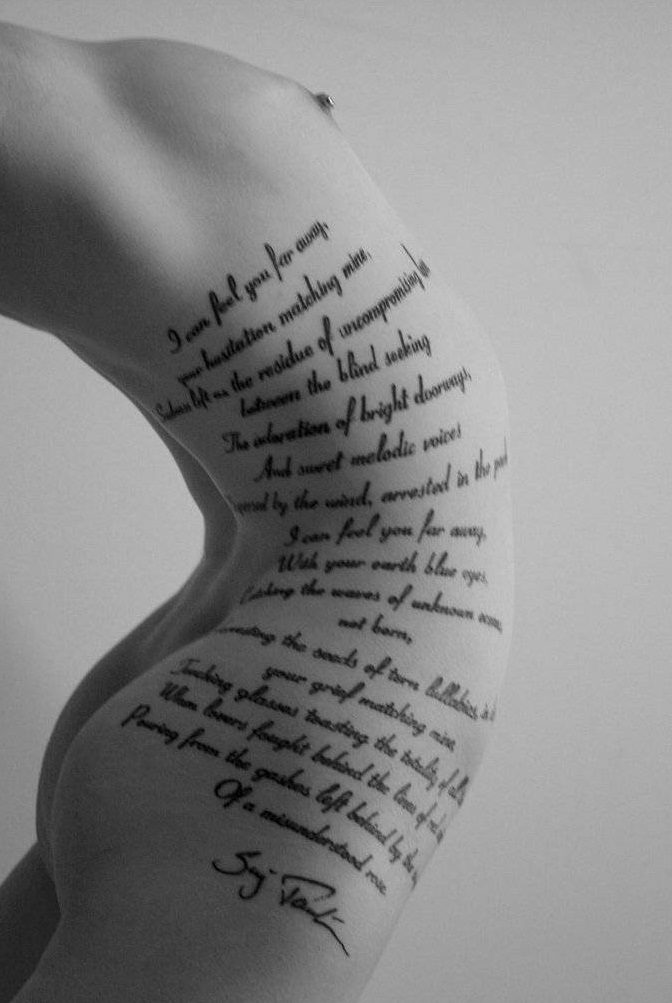 I can feel you far away,
your hesitation matching mine,
left as the residue of uncompromising
between the blind seeking
The adoration of bright doorways,
And sweet melodic voices
by the wind, arrested in the
I can feel you far away,
With your earth blue eyes,
Catching the waves of unknown oceans,
not born,
the seeds of torn lullabies,
your grief matching mine,
Touching glasses toasting the totality of
When lovers fought behind the lines of
Pouring from the gashes left behind by the
Of a misunderstood rose.